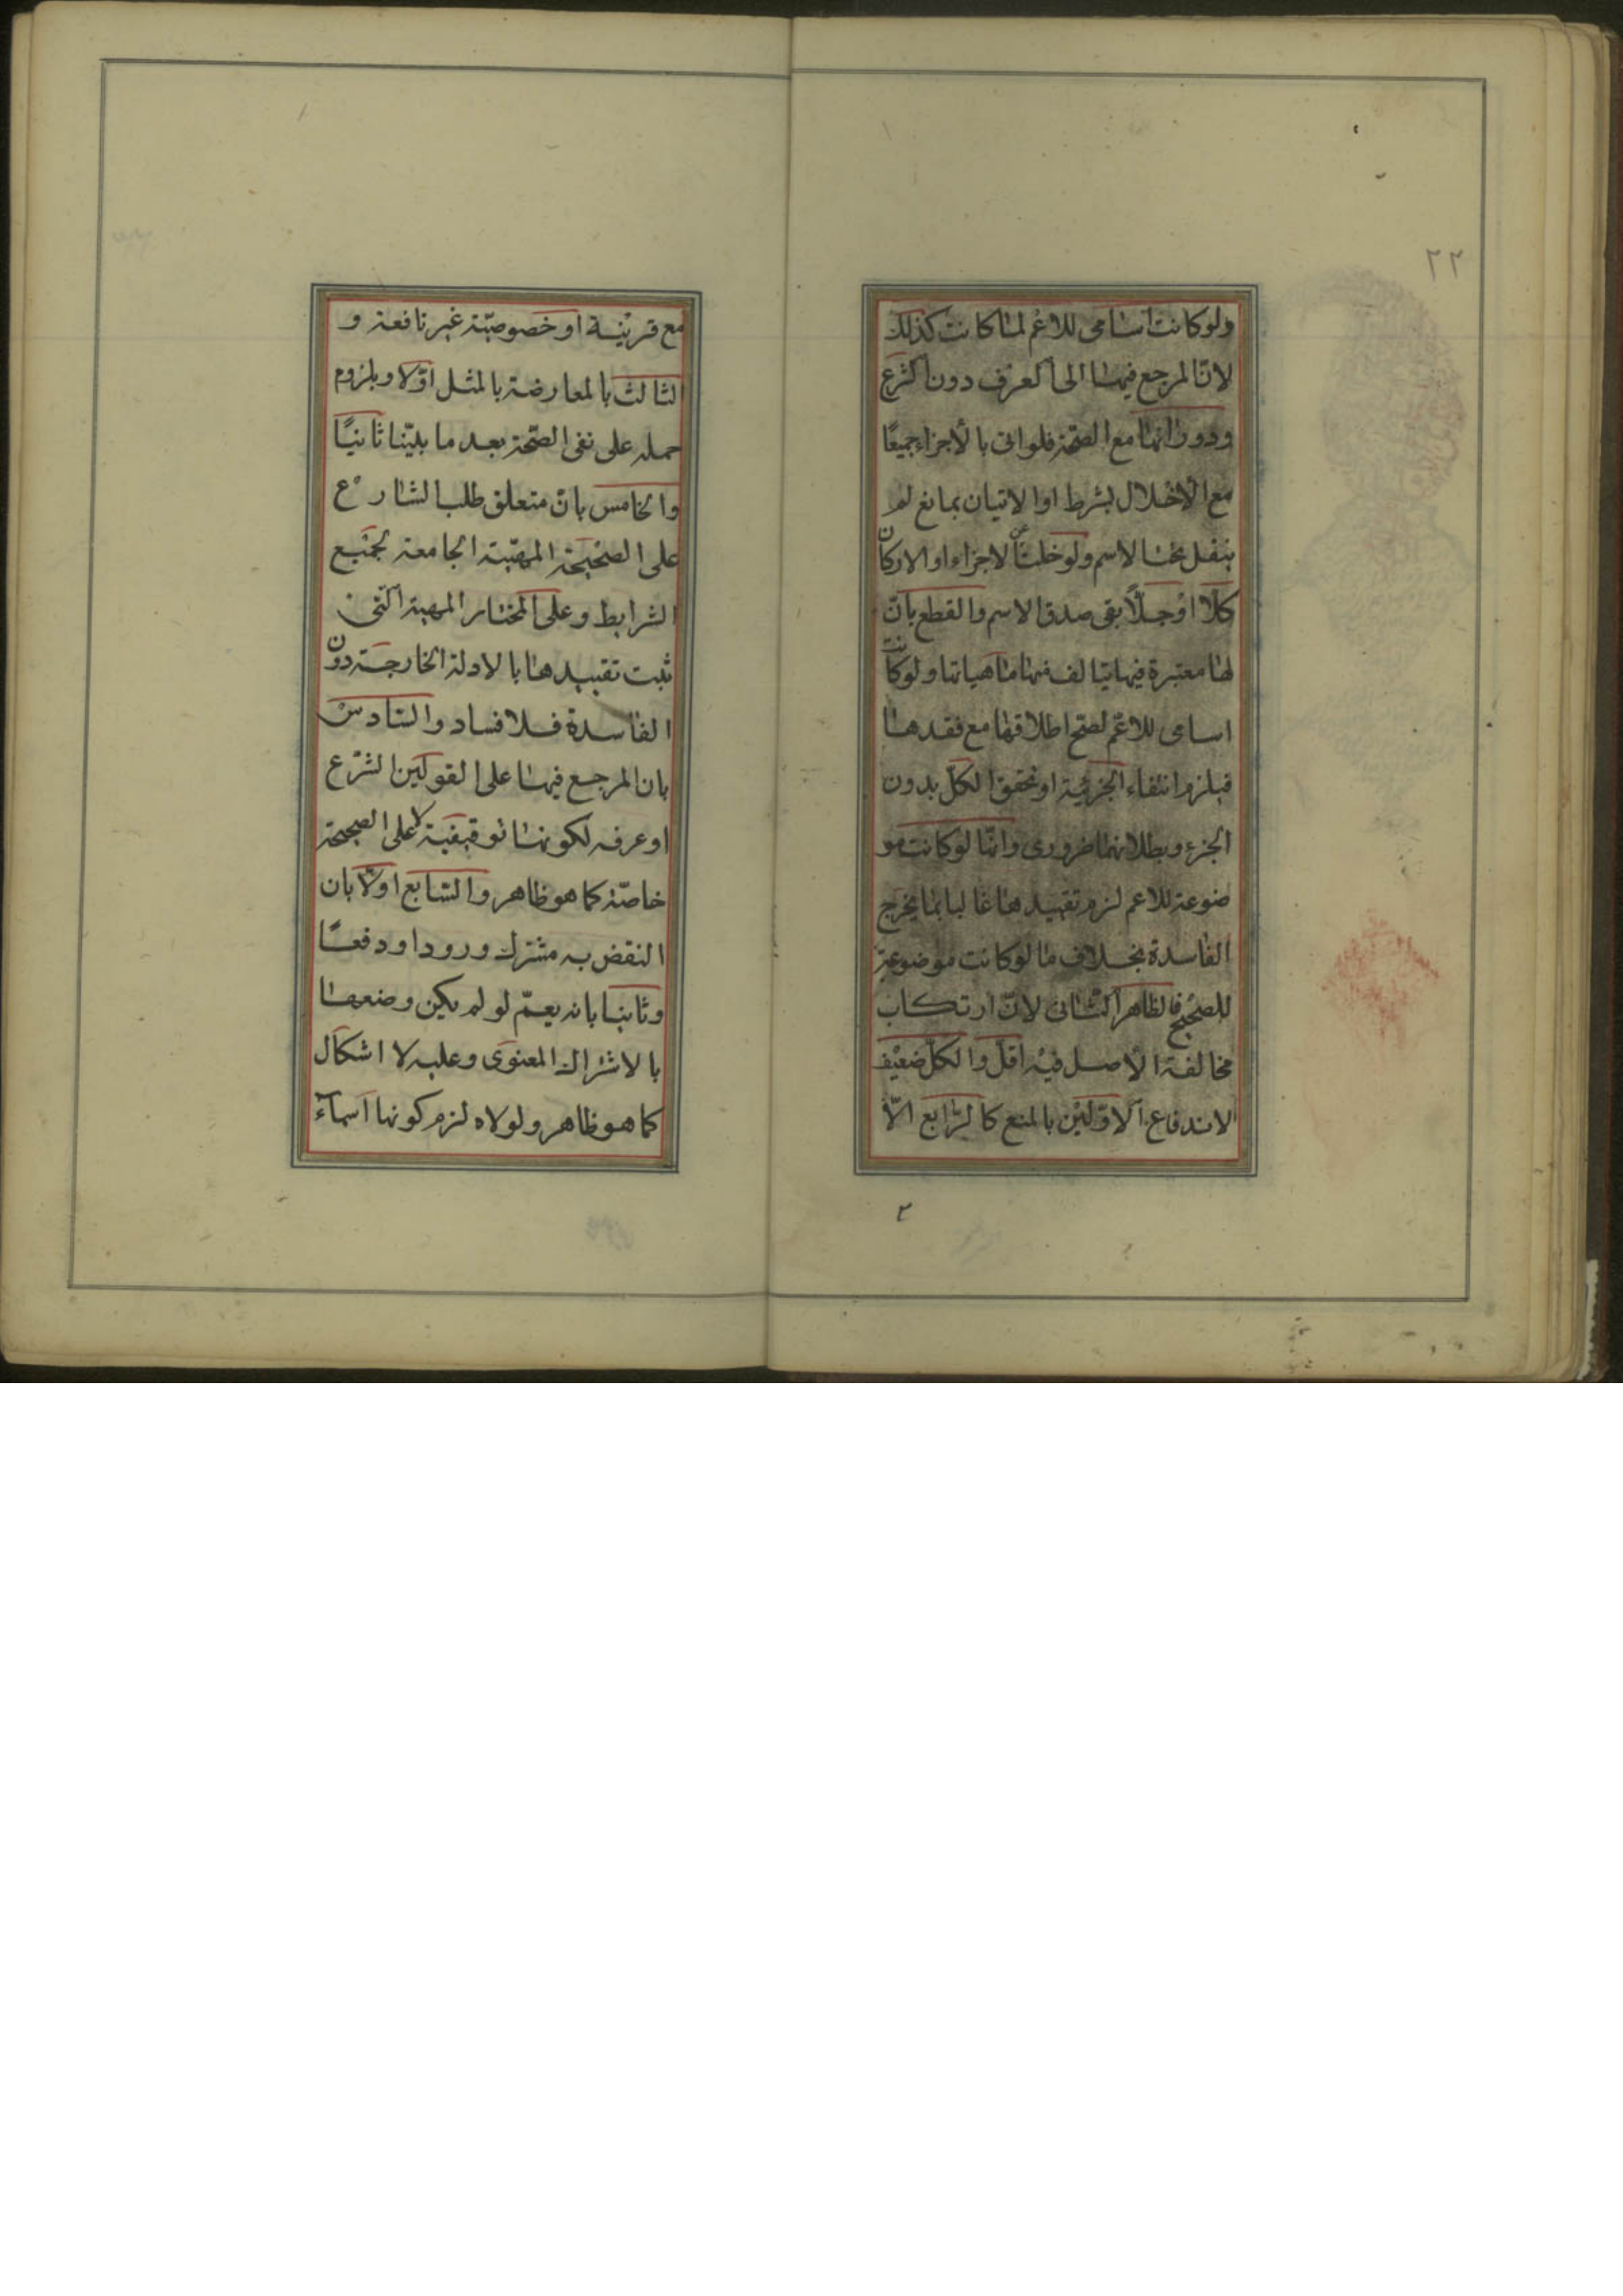 ٢٢
ولو كانت اسامى للاعم لما كانت كذلك
لان المرجع فيها الى العرف دون الشرع
ودورانها مع الصحة فلو اتى بالاجزاء جميعًا
مع الاخلال بشرط او الاتيان بمانع لم
ينفل بخشا الاسم ولو خلت عن الاجزاء او الاركان
كلًا او جلًا بقى صدق الاسم والقطع بانّ
لها معتبرة فيها يتالف منها ماهياتها ولو كانت
اسامى للاعمّ لصح اطلاقها مع فقدها
فيلزم انتفاء الجزئية او تحقق الكلّ بدون
الجزء وبطلانهما ضرورى وانّها لو كانت مو
ضوعة للاعم لزم تقييدها غالبا بما يخرج
الفاسدة بخلاف ما لو كانت موضوعة
للصحيح فالظاهر الثانى لانّ ارتكاب
مخالفة الاصل فيه اقلّ والكلّ ضعيف
لاندفاع الاوّلين بالمنع كالرابع الّا
٢
مع قرينة او خصوصيّة غير نافعة و
الثالث بالمعارضة بالمثل اوّلا وبلزوم
حمله على نفى الصّحة بعد ما بيّنا ثانيًا
والخامس بانّ متعلق طلب الشارع
على الصحيحة المهيّة الجامعة لجميع
الشرايط وعلى المختار المهية الّتى
ثبت تقييدها بالادلة الخارجة دون
الفاسدة فلا فساد والسّادس
بان المرجع فيها على القولين الشرع
او عرفه لكونها توقيفية لا على الصحيحة
خاصّة كما هو ظاهر والسّابع اولا بان
النقض به مشترك ورودا ودفعًا
وثانيا بانه يعمّ لو لم يكن وضعها
بالاشتراك المعنوى وعليه لا اشكال
كما هو ظاهر ولولاه لزم كونها اسماء